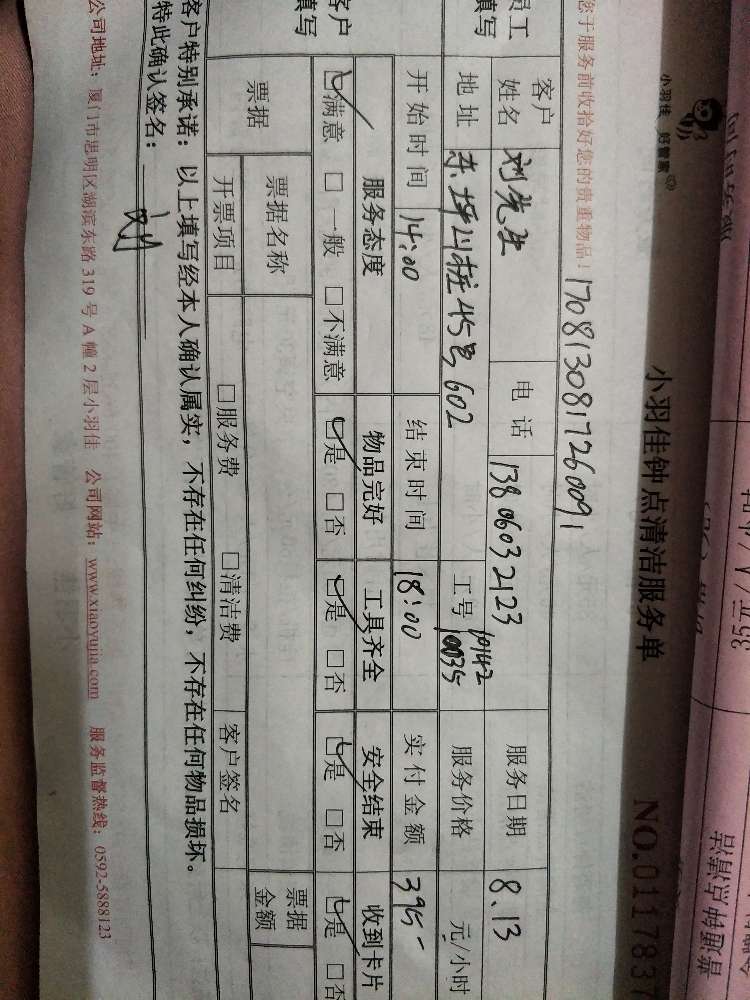 小羽佳 好管家
小羽佳钟点清洁服务单
NO.0117837
您于服务前收拾好您的贵重物品!
1708130817260091
员工
填写
客户
姓名
刘先生
电话
13806032123
服务日期
8.13
地址
东坪山桩45号602
工号
10142
10035
服务价格
元/小时
开始时间
14:00
结束时间
18:00
实付金额
395-
客户
填写
服务态度
物品完好
工具齐全
安全结束
收到卡片
☑满意 □一般 □不满意
☑是 □否
☑是 □否
☑是 □否
☑是 □否
票据
票据名称
票据
金额
开票项目
□服务费 □清洁费
客户签名
客户特别承诺：以上填写经本人确认属实，不存在任何纠纷，不存在任何物品损坏。
特此确认签名：
刘
公司地址：厦门市思明区湖滨东路 319 号 A 幢 2 层小羽佳 公司网站：www.xiaoyujia.com 服务监督热线：0592-5888123